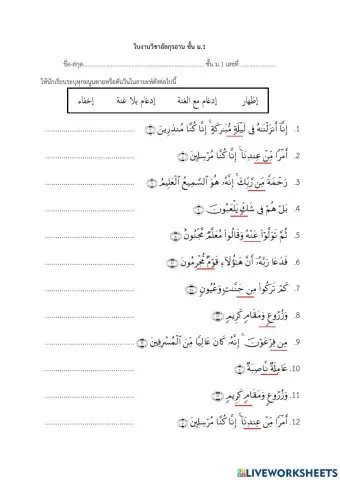 ใบงานวิชาอัลกุรอาน ชั้น ม.1
ชื่อ-สกุล.......................................................... ชั้น ม.1 เลขที่ ..................
ให้นักเรียนระบุหุกมนูนตายหรือตันวีนในอายะห์ดังต่อไปนี้
إظهار إدغام مع الغنة إدغام بلا غنة إخفاء
1. إِنَّآ أَنزَلْنَٰهُ فِى لَيْلَةٍ مُّبَٰرَكَةٍ ۚ إِنَّا كُنَّا مُنذِرِينَ
2. أَمْرًا مِّنْ عِندِنَآ ۚ إِنَّا كُنَّا مُرْسِلِينَ
3. رَحْمَةً مِّن رَّبِّكَ ۚ إِنَّهُۥ هُوَ ٱلسَّمِيعُ ٱلْعَلِيمُ
4. بَلْ هُمْ فِى شَكٍّ يَلْعَبُونَ
5. ثُمَّ تَوَلَّوْا۟ عَنْهُ وَقَالُوا۟ مُعَلَّمٌ مَّجْنُونٌ
6. فَدَعَا رَبَّهُۥٓ أَنَّ هَٰٓؤُلَآءِ قَوْمٌ مُّجْرِمُونَ
7. كَمْ تَرَكُوا۟ مِن جَنَّٰتٍ وَعُيُونٍ
8. وَزُرُوعٍ وَمَقَامٍ كَرِيمٍ
9. مِن فِرْعَوْنَ ۚ إِنَّهُۥ كَانَ عَالِيًا مِّنَ ٱلْمُسْرِفِينَ
10. عَامِلَةٌ نَّاصِبَةٌ
11. وَزُرُوعٍ وَمَقَامٍ كَرِيمٍ
12. أَمْرًا مِّنْ عِندِنَآ ۚ إِنَّا كُنَّا مُرْسِلِينَ
LIVEWORKSHEETS